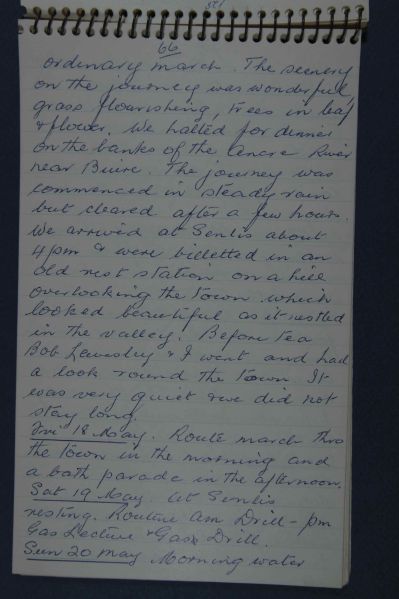 66
ordinary march. The scenery
on the journey was wonderful,
grass flourishing, trees in leaf
& flower. We halted for dinner
on the banks of the Ancre River
near Buire. The journey was
commenced in steady rain
but cleared after a few hours.
We arrived at Senlis about
4pm & were billetted in an
old rest station on a hill
overlooking the town which
looked beautiful as it nestled
in the valley. Before tea
Bob & I went and had
a look round the town It
was very quiet & we did not
stay long.
Fri 18 May. Route march thro
the town in the morning and
a bath parade in the afternoon.
Sat 19 May. At Senlis
resting. Routine am Drill - pm
Gas Lecture & Gas Drill.
Sun 20 May Morning water